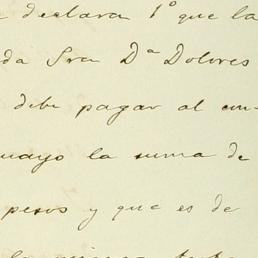 declara 1º que la
da Sra Dª Dolores
debe pagar al
mayo la suma de
pesos y que es de